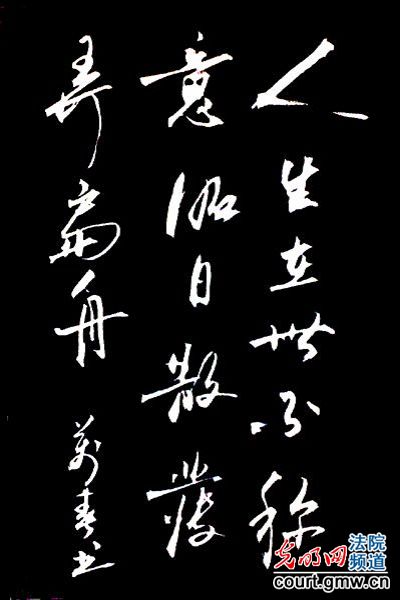 人生在世不称
意明日散發
弄扁舟 萬春书
光明网 法院频道
court.gmw.cn